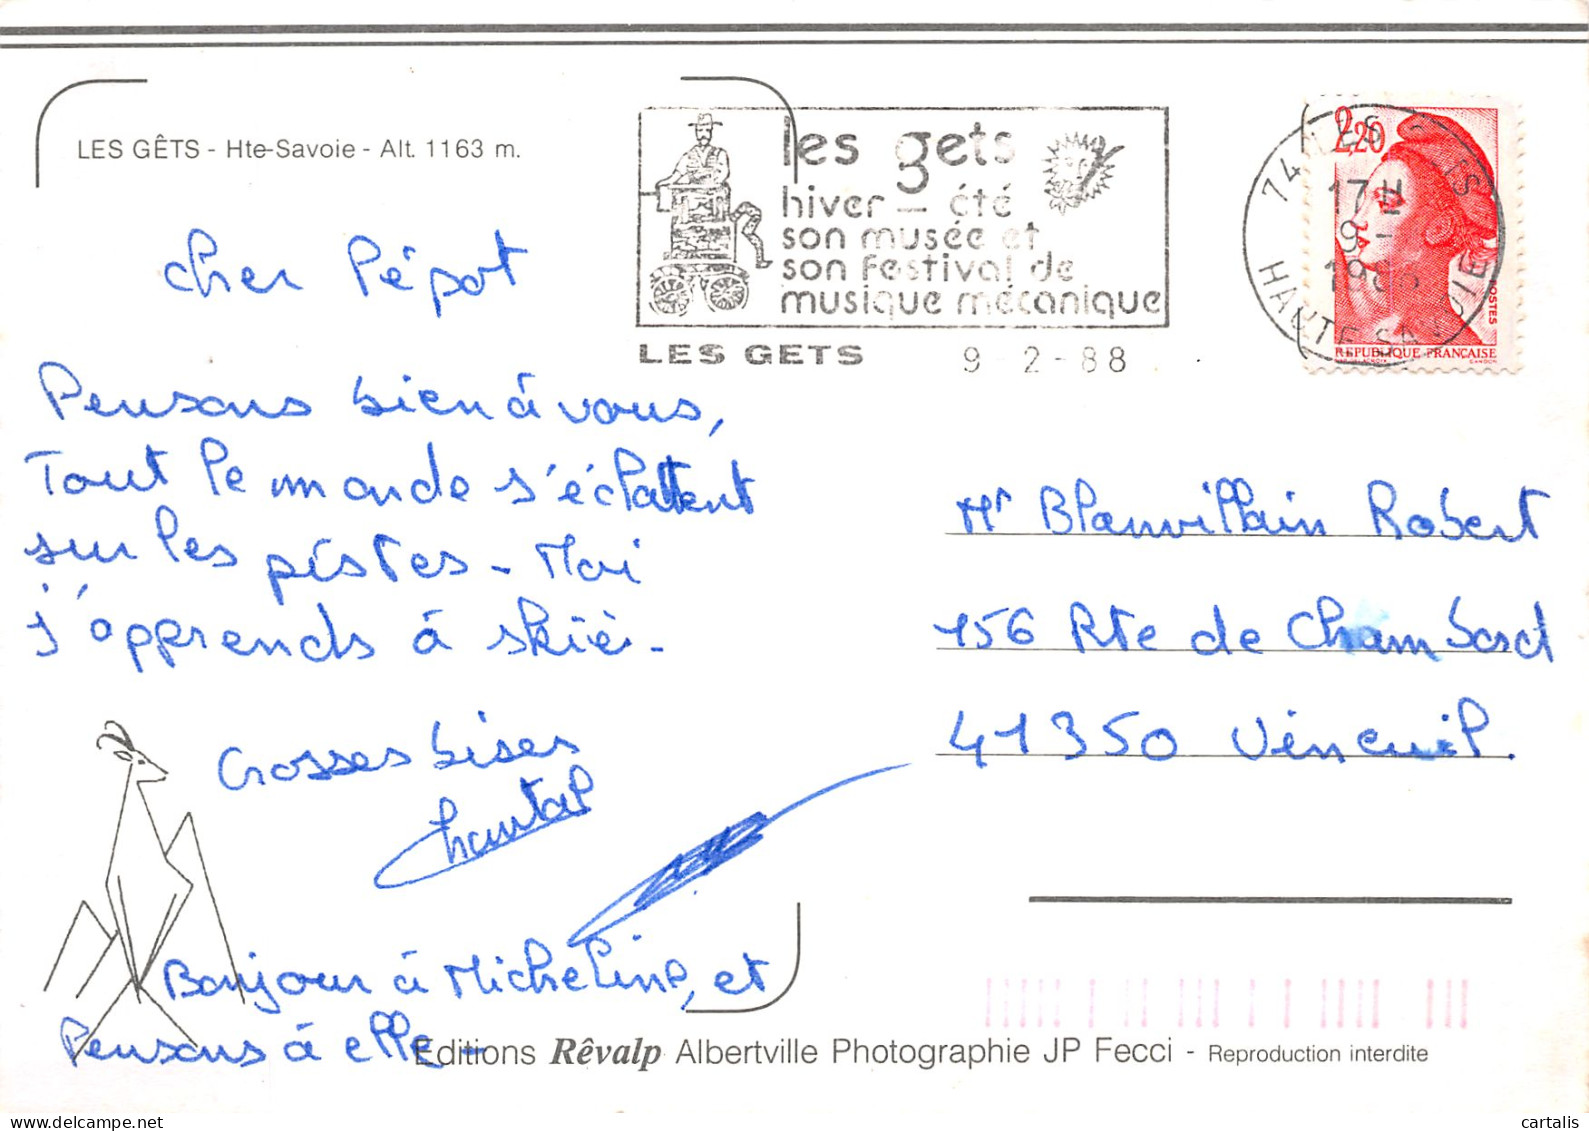 LES GÊTS - Hte-Savoie - Alt. 1163 m.
les gets
hiver - été
son musée et
son festival de
musique mécanique
LES GETS 9-2-88
74 LES GETS
17H
9-
1988
HAUTE SAVOIE
2,20
POSTES
REPUBLIQUE FRANÇAISE
cher Pépot
Pensons bien à vous,
Tout le monde s'éclattent
sur les pistes - Moi
j'apprends à skièr -
Grosses bises
Chantal
Bonjour à Micheline, et
Pensons à elle -
Mr Blanvillain Robert
156 Rte de Chambord
41350 Vineuil.
Editions Rêvalp Albertville Photographie JP Fecci - Reproduction interdite
cartalis
www.delcampe.net